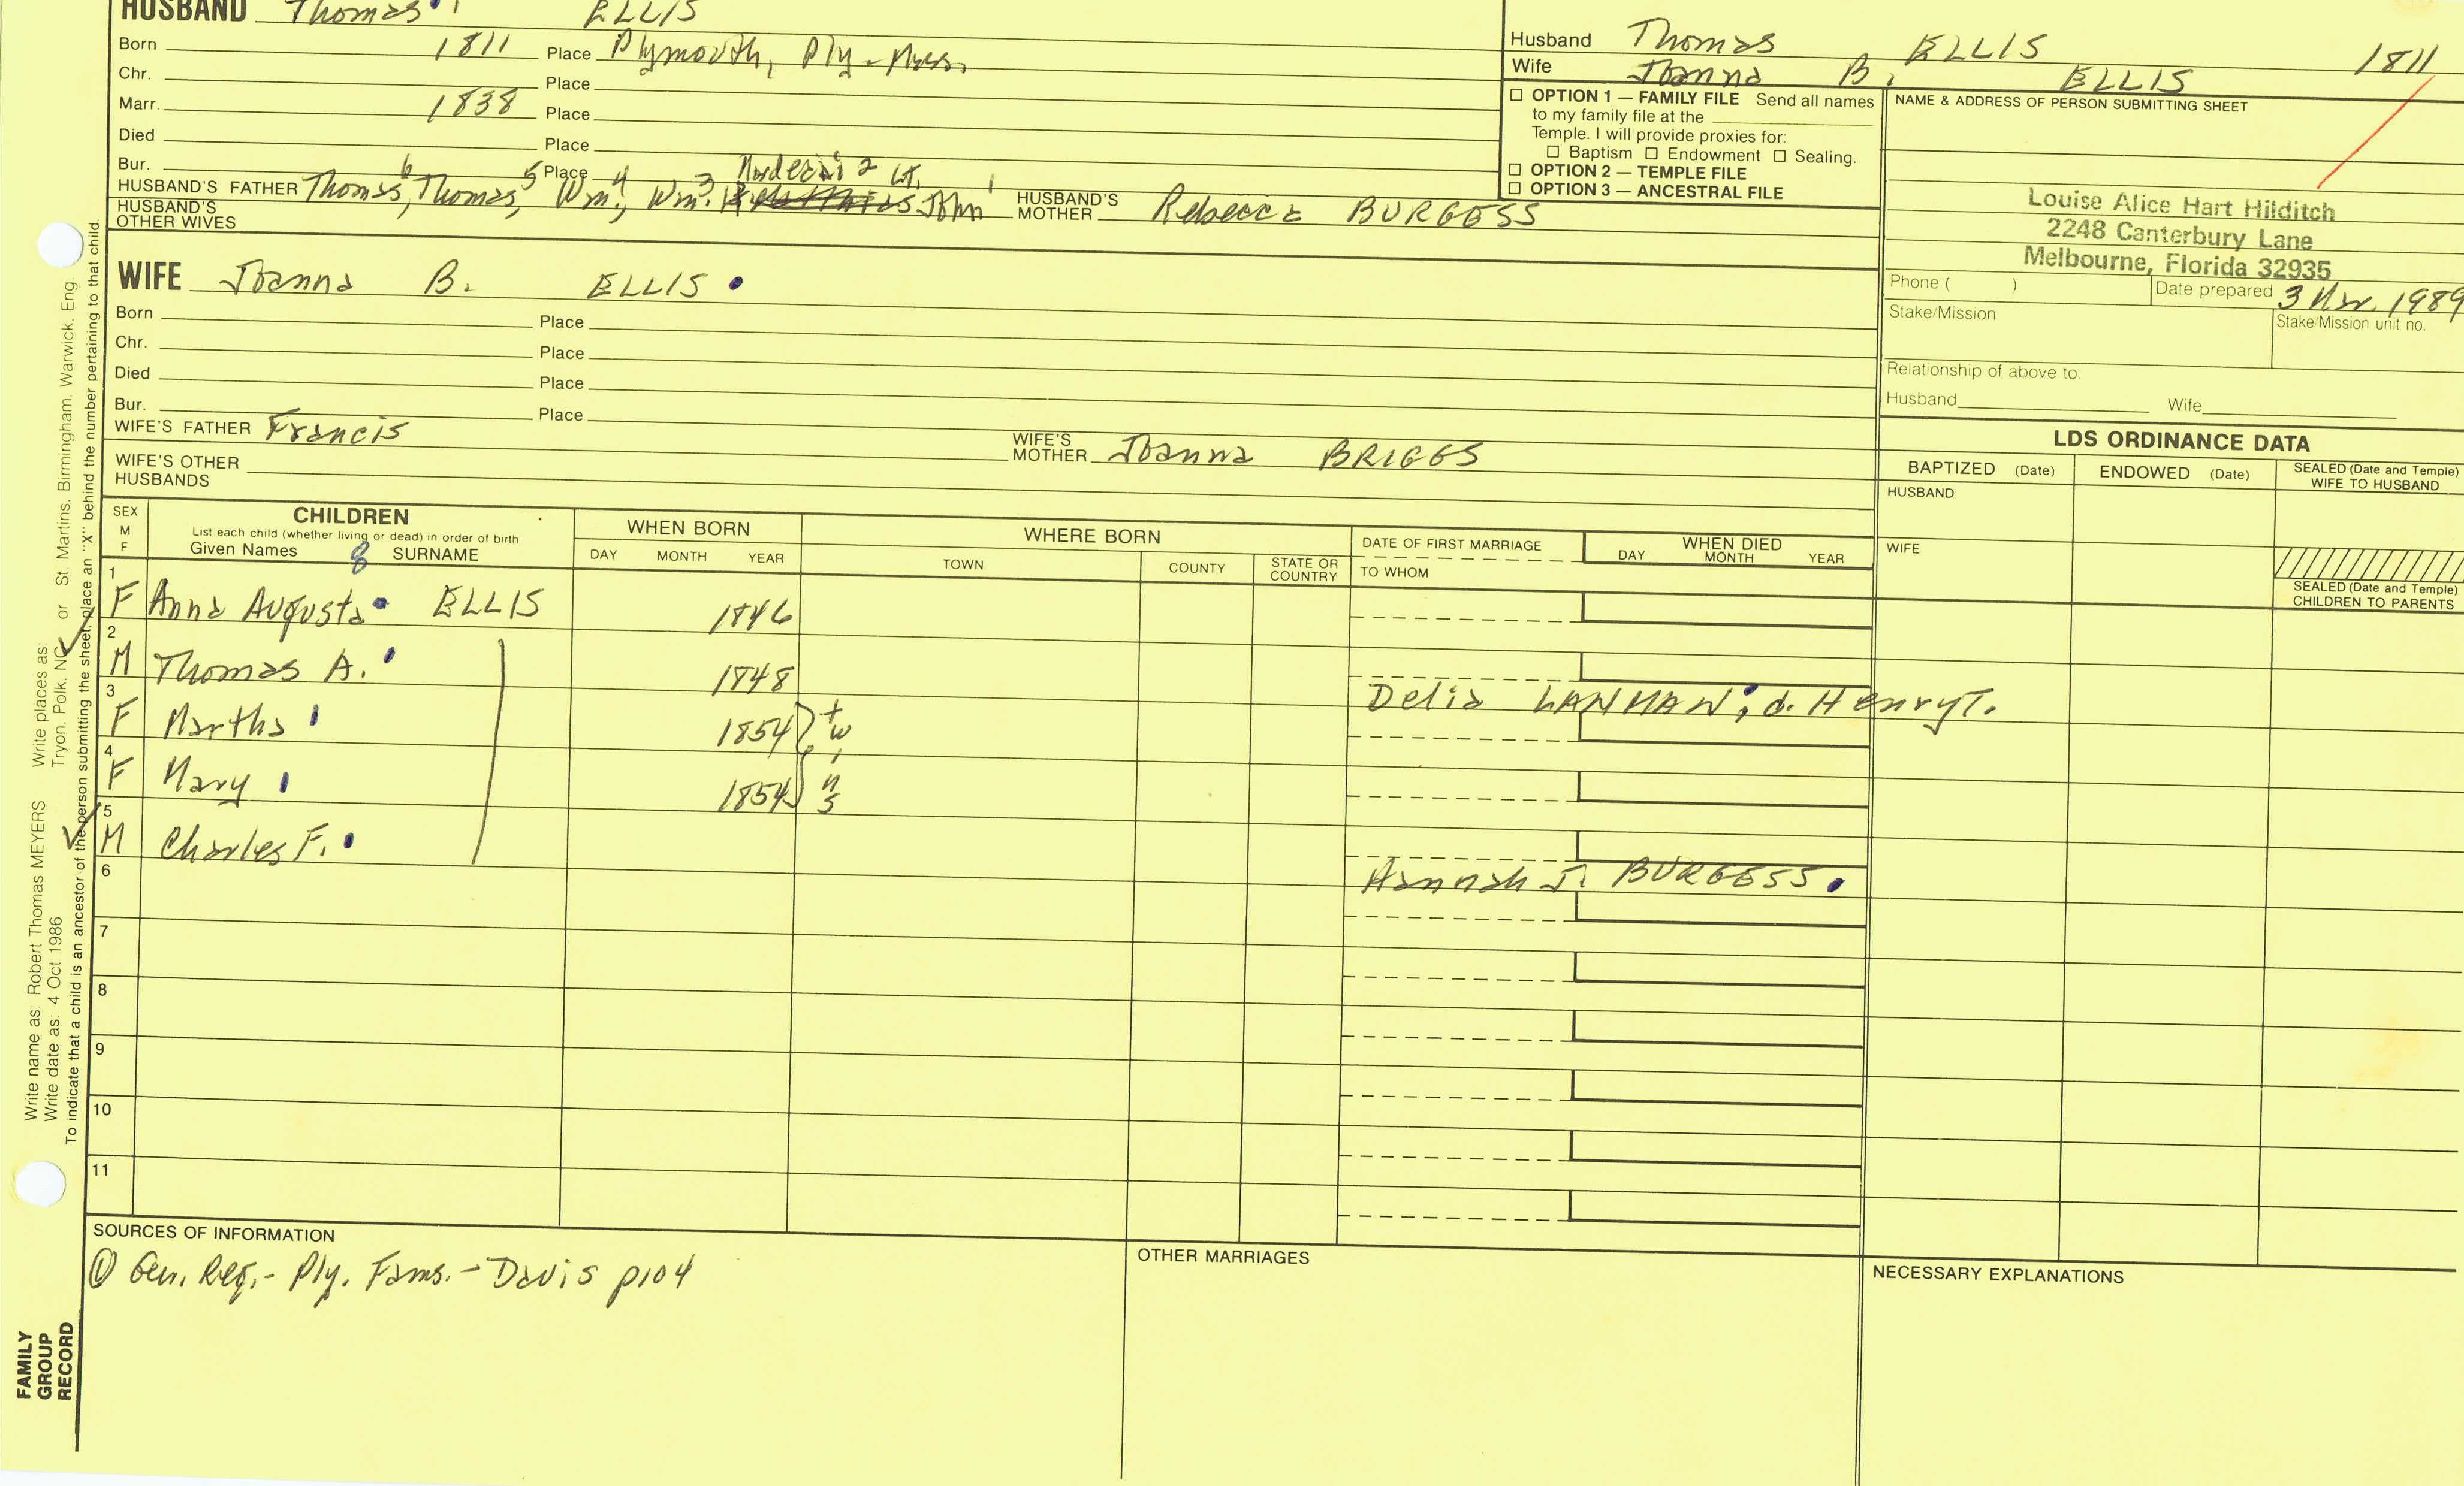 HUSBAND Thomas ELLIS
Born 1811 Place Plymouth, Ply - Mass.
Chr. Place
Marr. 1838 Place
Died Place
Bur. Place
HUSBAND'S FATHER Thomas, 6 Thomas, 5 Wm, 4 Wm. 3 Mordecai 2 Lt. John 1 HUSBAND'S MOTHER Rebecca BURGESS
HUSBAND'S OTHER WIVES
Husband Thomas ELLIS 1811
Wife Joanna B. ELLIS
☐ OPTION 1 — FAMILY FILE Send all names
to my family file at the
Temple. I will provide proxies for:
☐ Baptism ☐ Endowment ☐ Sealing.
☐ OPTION 2 — TEMPLE FILE
☐ OPTION 3 — ANCESTRAL FILE
NAME & ADDRESS OF PERSON SUBMITTING SHEET
Louise Alice Hart Hilditch
2248 Canterbury Lane
Melbourne, Florida 32935
Phone ( ) Date prepared 3 1989
Stake/Mission Stake/Mission unit no.
Relationship of above to
Husband Wife
WIFE Joanna B. ELLIS
Born Place
Chr. Place
Died Place
Bur. Place
WIFE'S FATHER Francis WIFE'S MOTHER Joanna BRIGGS
WIFE'S OTHER HUSBANDS
LDS ORDINANCE DATA
BAPTIZED (Date) ENDOWED (Date) SEALED (Date and Temple) WIFE TO HUSBAND
HUSBAND
WIFE
SEALED (Date and Temple) CHILDREN TO PARENTS
SEX M F
CHILDREN
List each child (whether living or dead) in order of birth
Given Names 8 SURNAME
WHEN BORN
DAY MONTH YEAR
WHERE BORN
TOWN COUNTY STATE OR COUNTRY
DATE OF FIRST MARRIAGE
TO WHOM
WHEN DIED
DAY MONTH YEAR
1 F Anna Augusta ELLIS 1846
2 M Thomas A. 1848
Delia LANMAN, d. Henry T.
3 F Martha 1854 twins
4 F Mary 1854
5 M Charles F.
Hannah J. BURGESS
6
7
8
9
10
11
SOURCES OF INFORMATION
① Gen. Reg. - Ply. Fams. - Davis p104
OTHER MARRIAGES
NECESSARY EXPLANATIONS
Write name as: Robert Thomas MEYERS Write places as: Tryon. Polk. NC or St. Martins. Birmingham. Warwick. Eng.
Write date as: 4 Oct 1986
To indicate that a child is an ancestor of the person submitting the sheet, place an "X" behind the number pertaining to that child
FAMILY
GROUP
RECORD